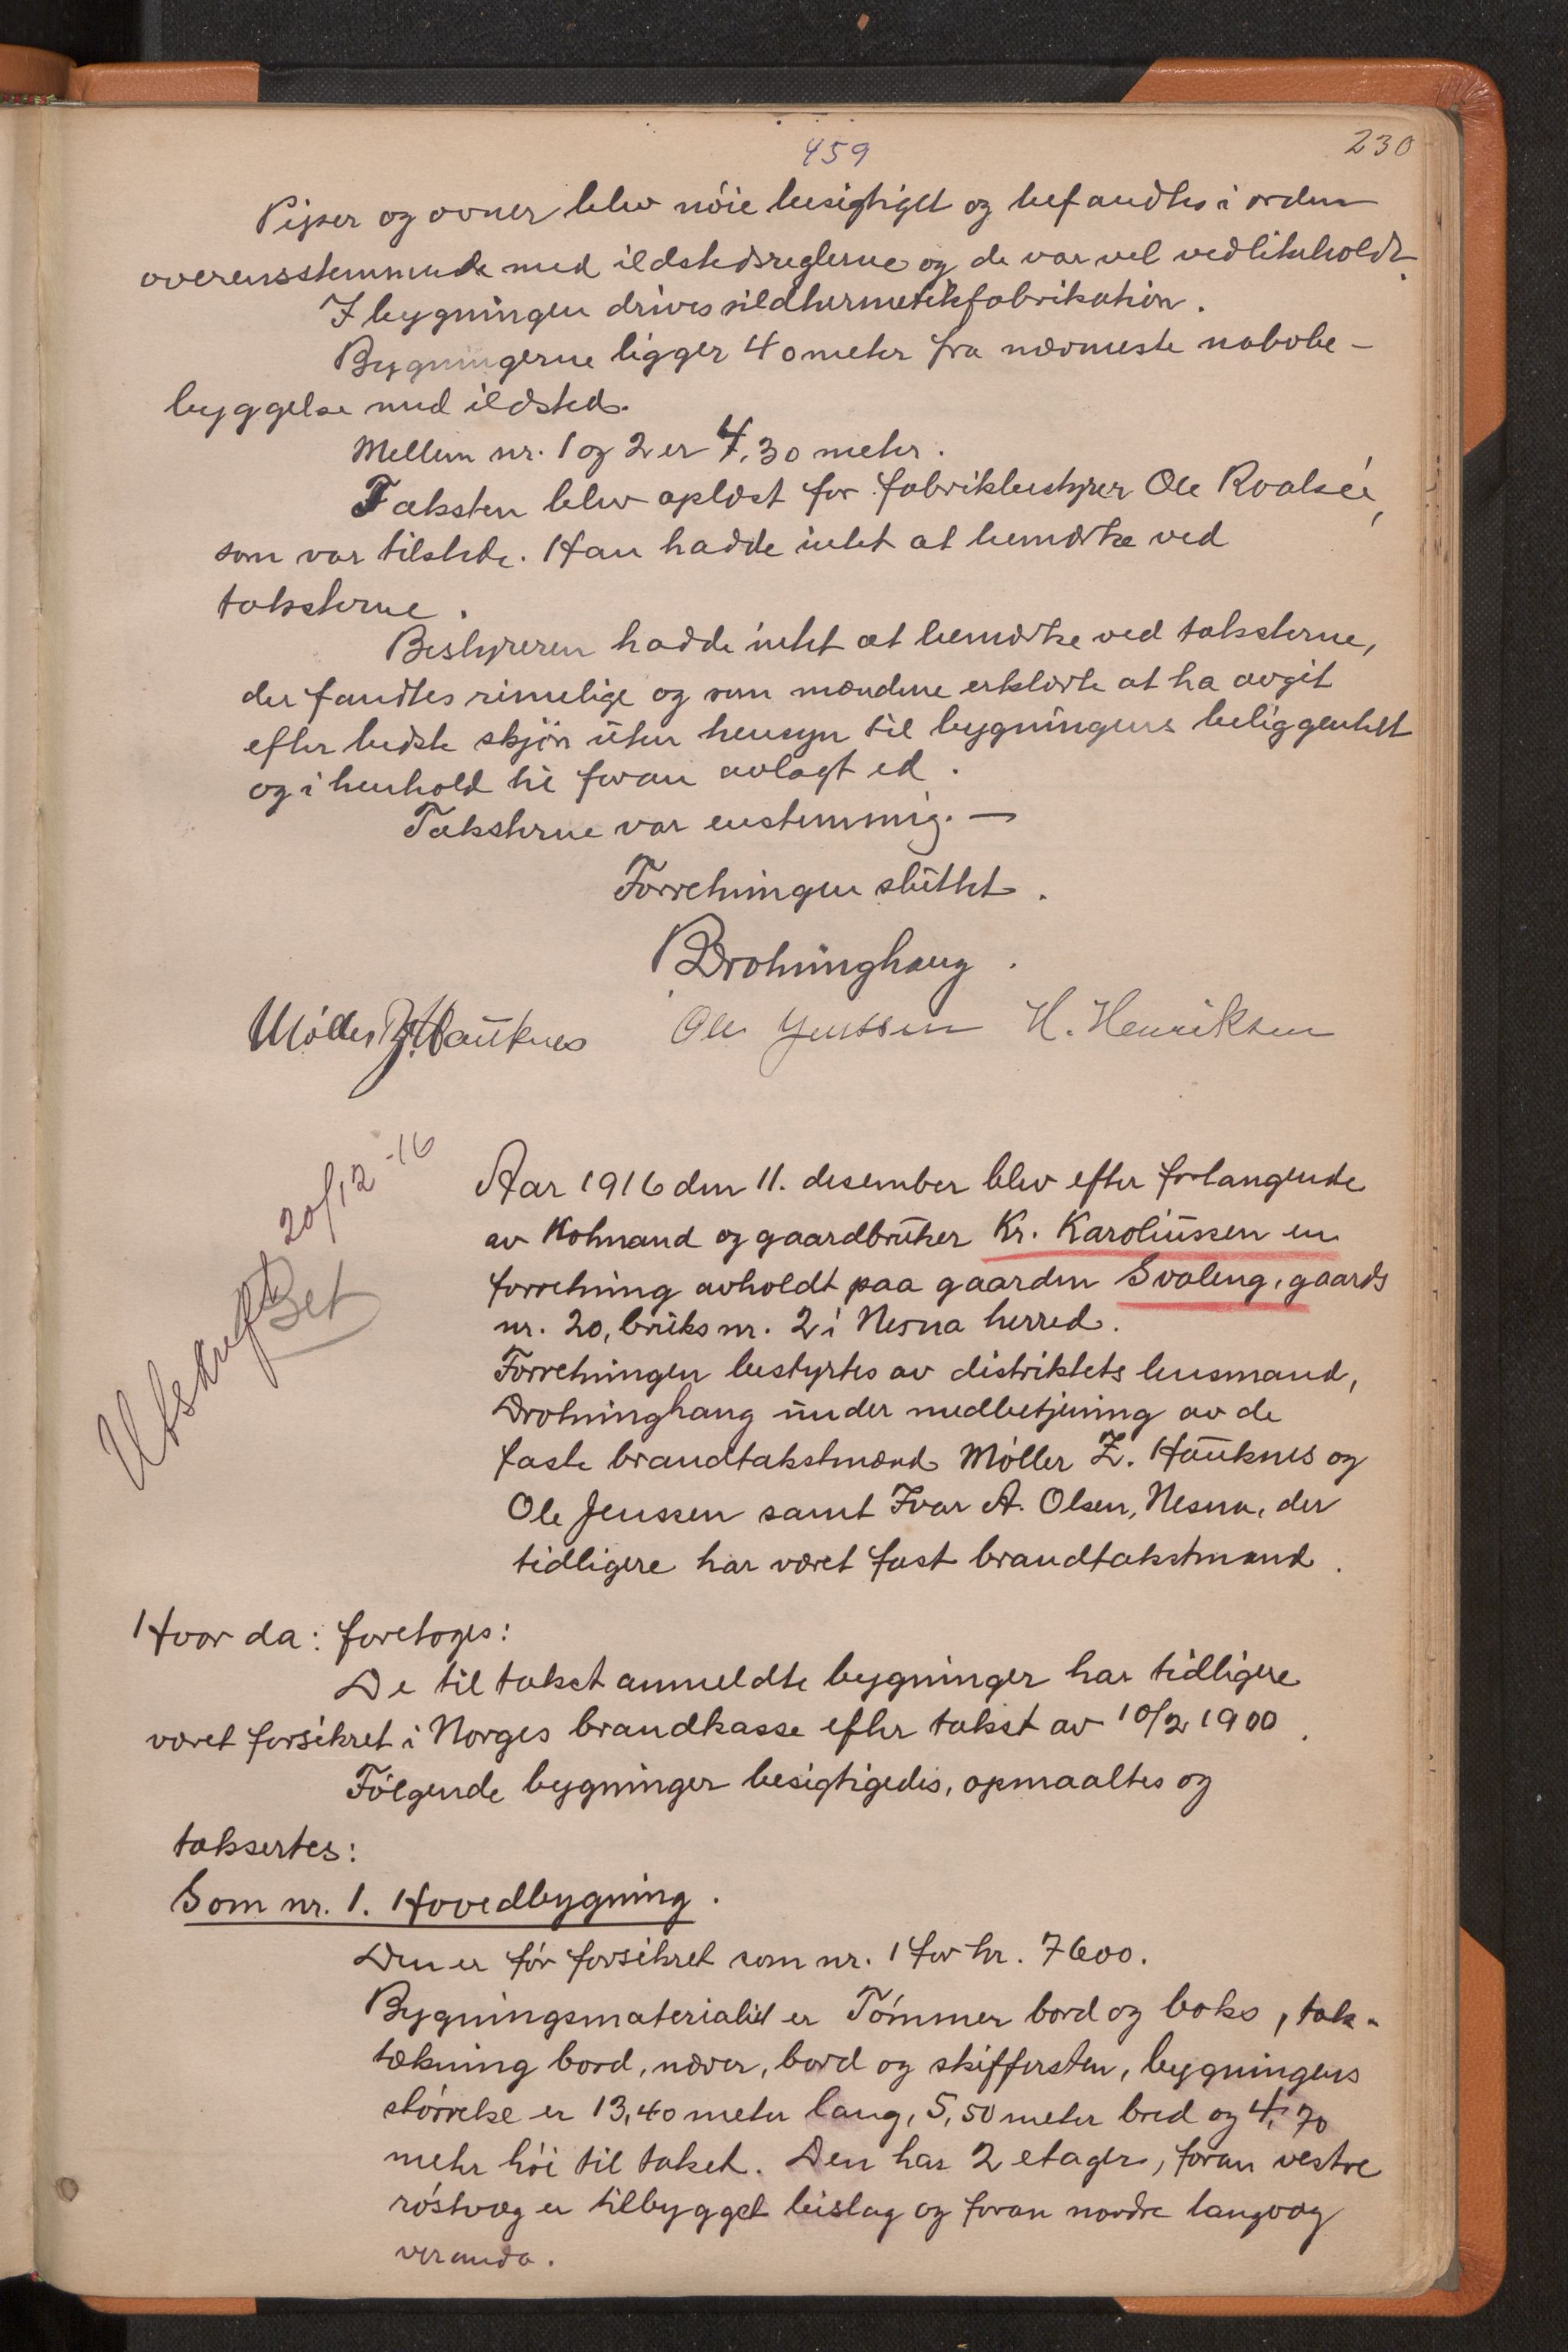 459
230
Piper og ovner blev nöie besigtiget og befandtes i orden
overensstemmende med ildstedsreglerne og de var vel vedlikeholdt.
I bygningen drives sildhermetikfabrikation.
Bygningerne ligger 40 meter fra nærmeste nabobe-
byggelse med ildsted.
Mellem nr. 1 og 2 er 4,30 meter.
Taksten blev oplæst for fabrikbestyrer Ole Roalsé,
som var tilstede. Han hadde intet at bemærke ved
taksterne.
Bestyreren hadde intet at bemærke ved taksterne,
der fandtes rimelige og som mændene erklærte at ha avgit
efter bedste skjön uten hensyn til bygningens beliggenhet
og i henhold til foran avlagt ed.
Taksterne var enstemmig. —
Forretningen sluttet.
Drotninghaug.
Möller Z. Hauknes Ole Jenssen H. Henriksen
Utskrift
20/12-16
Aar 1916 den 11. desember blev efter forlangende
av Kolmand og gaardbruker Kr. Karoliussen en
forretning avholdt paa gaarden Svaleng, gaards
nr. 20, bruks nr. 2 i Nesna herred.
Forretningen bestyrtes av distriktets lensmand,
Drotninghaug under medbetjening av de
faste brandtakstmænd Möller Z. Hauknes og
Ole Jenssen samt Ivar A. Olsen, Nesna, der
tidligere har været fast brandtakstmand.
Hvor da: foretoges:
De til takst anmeldte bygninger har tidligere
været forsikret i Norges brandkasse efter takst av 10/2 1900.
Fölgende bygninger besigtigedes, opmaaltes og
taksertes:
Som nr. 1. Hovedbygning.
Den er för forsikret som nr. 1 for kr. 7600.
Bygningsmaterialet er Tömmer bord og boks, tak-
tækning bord, næver, bord og skiffersten, bygningens
störrelse er 13,40 meter lang, 5,50 meter bred og 4,70
meter höi til taket. Den har 2 etager, foran vestre
röstvæg er tilbygget bislag og foran nordre langvæg
veranda.